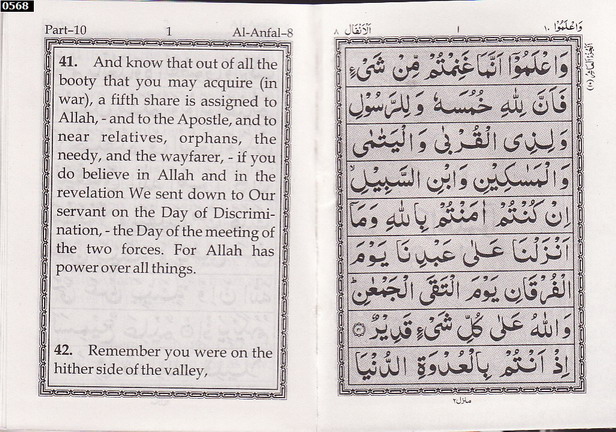 0568
Part-10 1 Al-Anfal-8
41. And know that out of all the
booty that you may acquire (in
war), a fifth share is assigned to
Allah, - and to the Apostle, and to
near relatives, orphans, the
needy, and the wayfarer, - if you
do believe in Allah and in the
revelation We sent down to Our
servant on the Day of Discrimi-
nation, - the Day of the meeting of
the two forces. For Allah has
power over all things.
42. Remember you were on the
hither side of the valley,
وَاعْلَمُوْٓا ١٠ ١ اَلْاَنْفَال ٨
وَاعْلَمُوْٓا اَنَّمَا غَنِمْتُمْ مِّنْ شَىْءٍ
فَاَنَّ لِلّٰهِ خُمُسَهٗ وَلِلرَّسُوْلِ
وَلِذِى الْقُرْبٰى وَالْيَتٰمٰى
وَالْمَسٰكِيْنِ وَابْنِ السَّبِيْلِ
اِنْ كُنْتُمْ اٰمَنْتُمْ بِاللّٰهِ وَمَآ
اَنْزَلْنَا عَلٰى عَبْدِنَا يَوْمَ
الْفُرْقَانِ يَوْمَ الْتَقَى الْجَمْعٰنِ
وَاللّٰهُ عَلٰى كُلِّ شَىْءٍ قَدِيْرٌ ۝
اِذْ اَنْتُمْ بِالْعُدْوَةِ الدُّنْيَا
منزل ٢